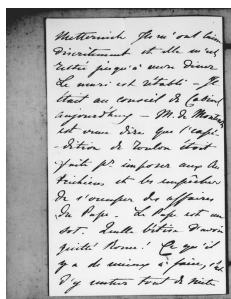 Metternich Ils m'ont laissé
discrètement et elle m'est
restée jusqu'à mon diner
Le mari est rétabli - Il
était au conseil de Cabinet
aujourdhuy - M. de Montal
est venu dire que l'expé-
-dition de Toulon était
faite pr imposer aux Au
trichiens et les empêcher
de s'occuper des affaires
du Pape. Le Pape est un
sot. Quelle bêtise d'avoir
quitté Rome! Ce qu'il
y a de mieux à faire, c'est
d'y rentrer tout de suite